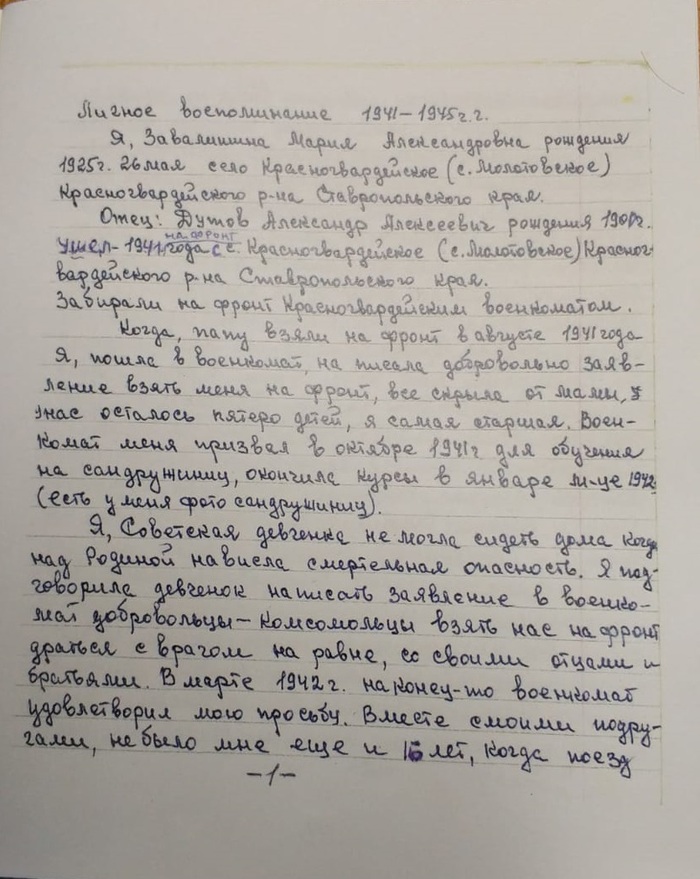 Личное воспоминание 1941–1945 г.г.
Я, Завалишина Мария Александровна рождения
1925г. 26 мая село Красногвардейское (с. Молотовское)
Красногвардейского р-на Ставропольского края.
Отец: Дутов Александр Алексеевич рождения 1900г.
на фронт
Ушел - 1941 года с с. Красногвардейское (с. Молотовское) Красног-
вардейского р-на Ставропольского края.
Забирали на фронт Красногвардейским военкоматом.
Когда, папу взяли на фронт в августе 1941 года
Я, пошла в военкомат, на писала добровольно заяв-
ление взять меня на фронт, все скрыла от мамы,
унас осталось пятеро детей, я самая старшая. Воен-
комат меня призвал в октябре 1941г для обучения
на сандружиниц, окончила курсы в январе м-це 1942
(есть у меня фото сандружиниц).
Я, Советская девченка не могла сидеть дома когда
над Родиной нависла смертельная опасность. Я под-
говорила девченок написать заявление в военко-
мат добровольцы – комсомольцы взять нас на фронт
драться с врагом на равне, со своими отцами и
братьями. В марте 1942г. наконец-то военкомат
удовлетворил мою просьбу. Вместе смоими подру-
гами, небыло мне еще и лет, когда поезд
-1-